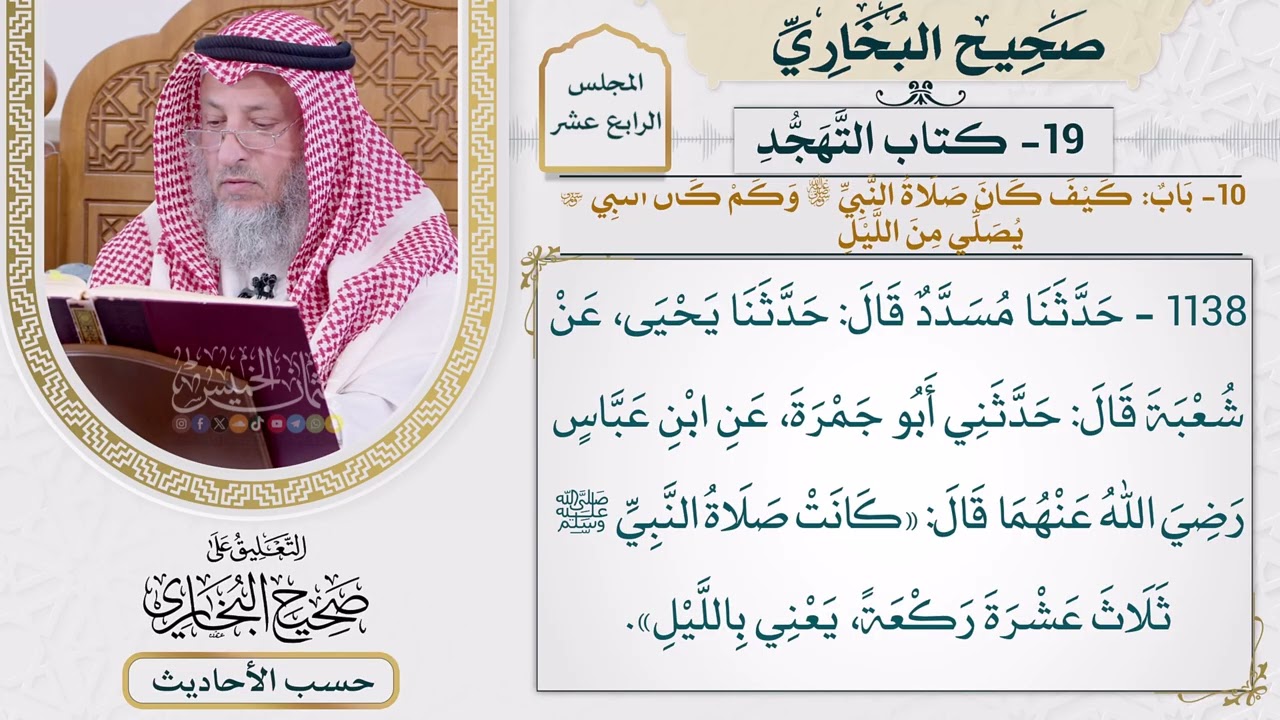 صَحِيح البُخَارِيِّ
المجلس
الرابع عشر
19- كتاب التَّهَجُّدِ
10- بَابٌ: كَيْفَ كَانَ صَلَاةُ النَّبِيِّ ﷺ وَكَمْ كَانَ النَّبِيُّ ﷺ
يُصَلِّي مِنَ اللَّيْلِ
1138 - حَدَّثَنَا مُسَدَّدٌ قَالَ: حَدَّثَنَا يَحْيَى، عَنْ
شُعْبَةَ قَالَ: حَدَّثَنِي أَبُو جَمْرَةَ، عَنِ ابْنِ عَبَّاسٍ
رَضِيَ اللهُ عَنْهُمَا قَالَ: «كَانَتْ صَلَاةُ النَّبِيِّ ﷺ
ثَلَاثَ عَشْرَةَ رَكْعَةً، يَعْنِي بِاللَّيْلِ».
عثمان الخميس
التَّعْلِيقُ عَلَى
صَحِيحِ البُخَارِي
حسب الأحاديث